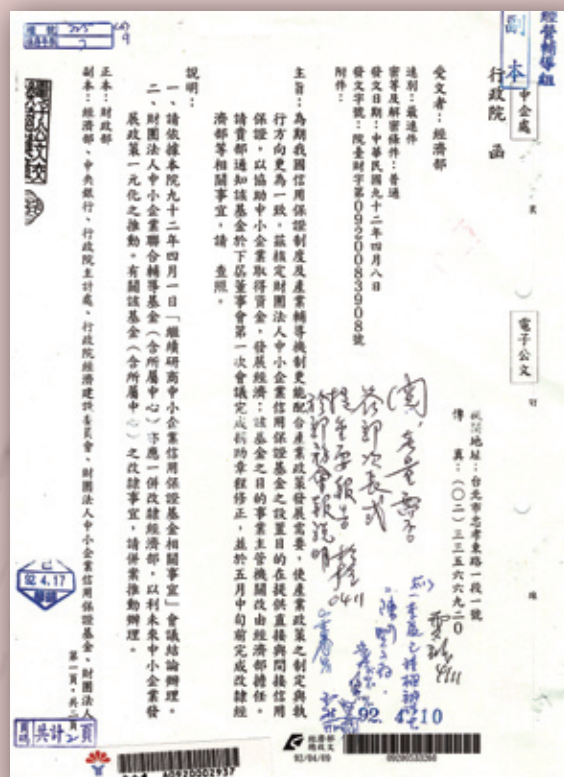 經營輔導組
副本
中企處
行政院 函
機關地址：台北市忠孝東路一段一號
傳 真：（〇二）三三五六六九二〇
電子公文
受文者：經濟部
速別：最速件
密等及解密條件：普通
發文日期：中華民國九十二年四月八日
發文字號：院臺財字第0920083908號
附件：
主旨：為期我國信用保證制度及產業輔導機制更能配合產業政策發展需要，使產業政策之制定與執
行方向更為一致，茲核定財團法人中小企業信用保證基金之設置目的在提供直接與間接信用
保證，以協助中小企業取得資金，發展經濟；該基金之目的事業主管機關改由經濟部擔任。
請貴部通知該基金於下屆董事會第一次會議完成捐助章程修正，並於五月中旬前完成改隸經
濟部等相關事宜，請 查照。
說明：
一、請依據本院九十二年四月一日「繼續研商中小企業信用保證基金相關事宜」會議結論辦理。
二、財團法人中小企業聯合輔導基金（含所屬中心）亦應一併改隸經濟部，以利未來中小企業發
展政策一元化之推動。有關該基金（含所屬中心）之改隸事宜，請併案推動辦理。
正本：財政部
副本：經濟部、中央銀行、行政院主計處、行政院經濟建設委員會、財團法人中小企業信用保證基金、財團法人
第一頁，共二頁
92 4.17
92 4 10
共計2頁
A0920002937
經濟部
總收文
92/04/09
09200533260